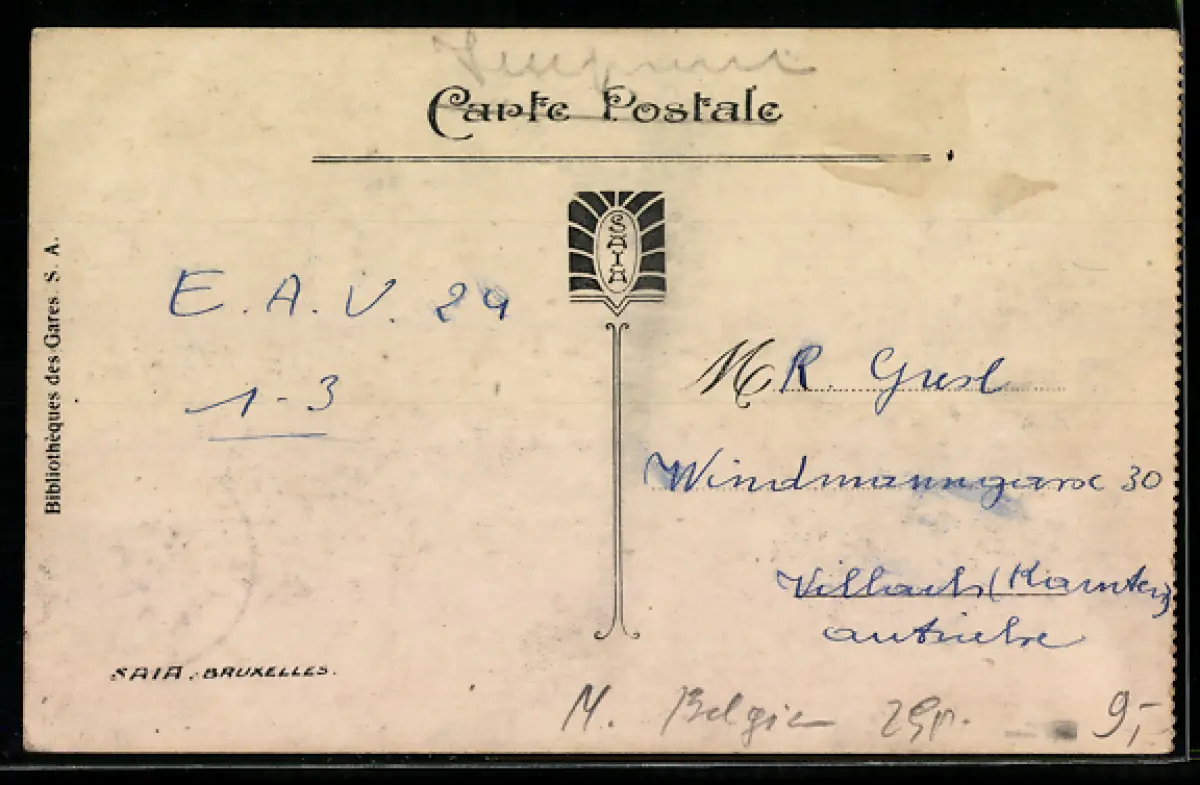 Carte Postale
SAIA
Bibliothèques des Gares. S. A.
E. A. V. 29
1-3
MR. Gresl
Windmanngasse 30
Villach (Kärnten)
autriche
SAIA. BRUXELLES.
M. Belgien 9,-